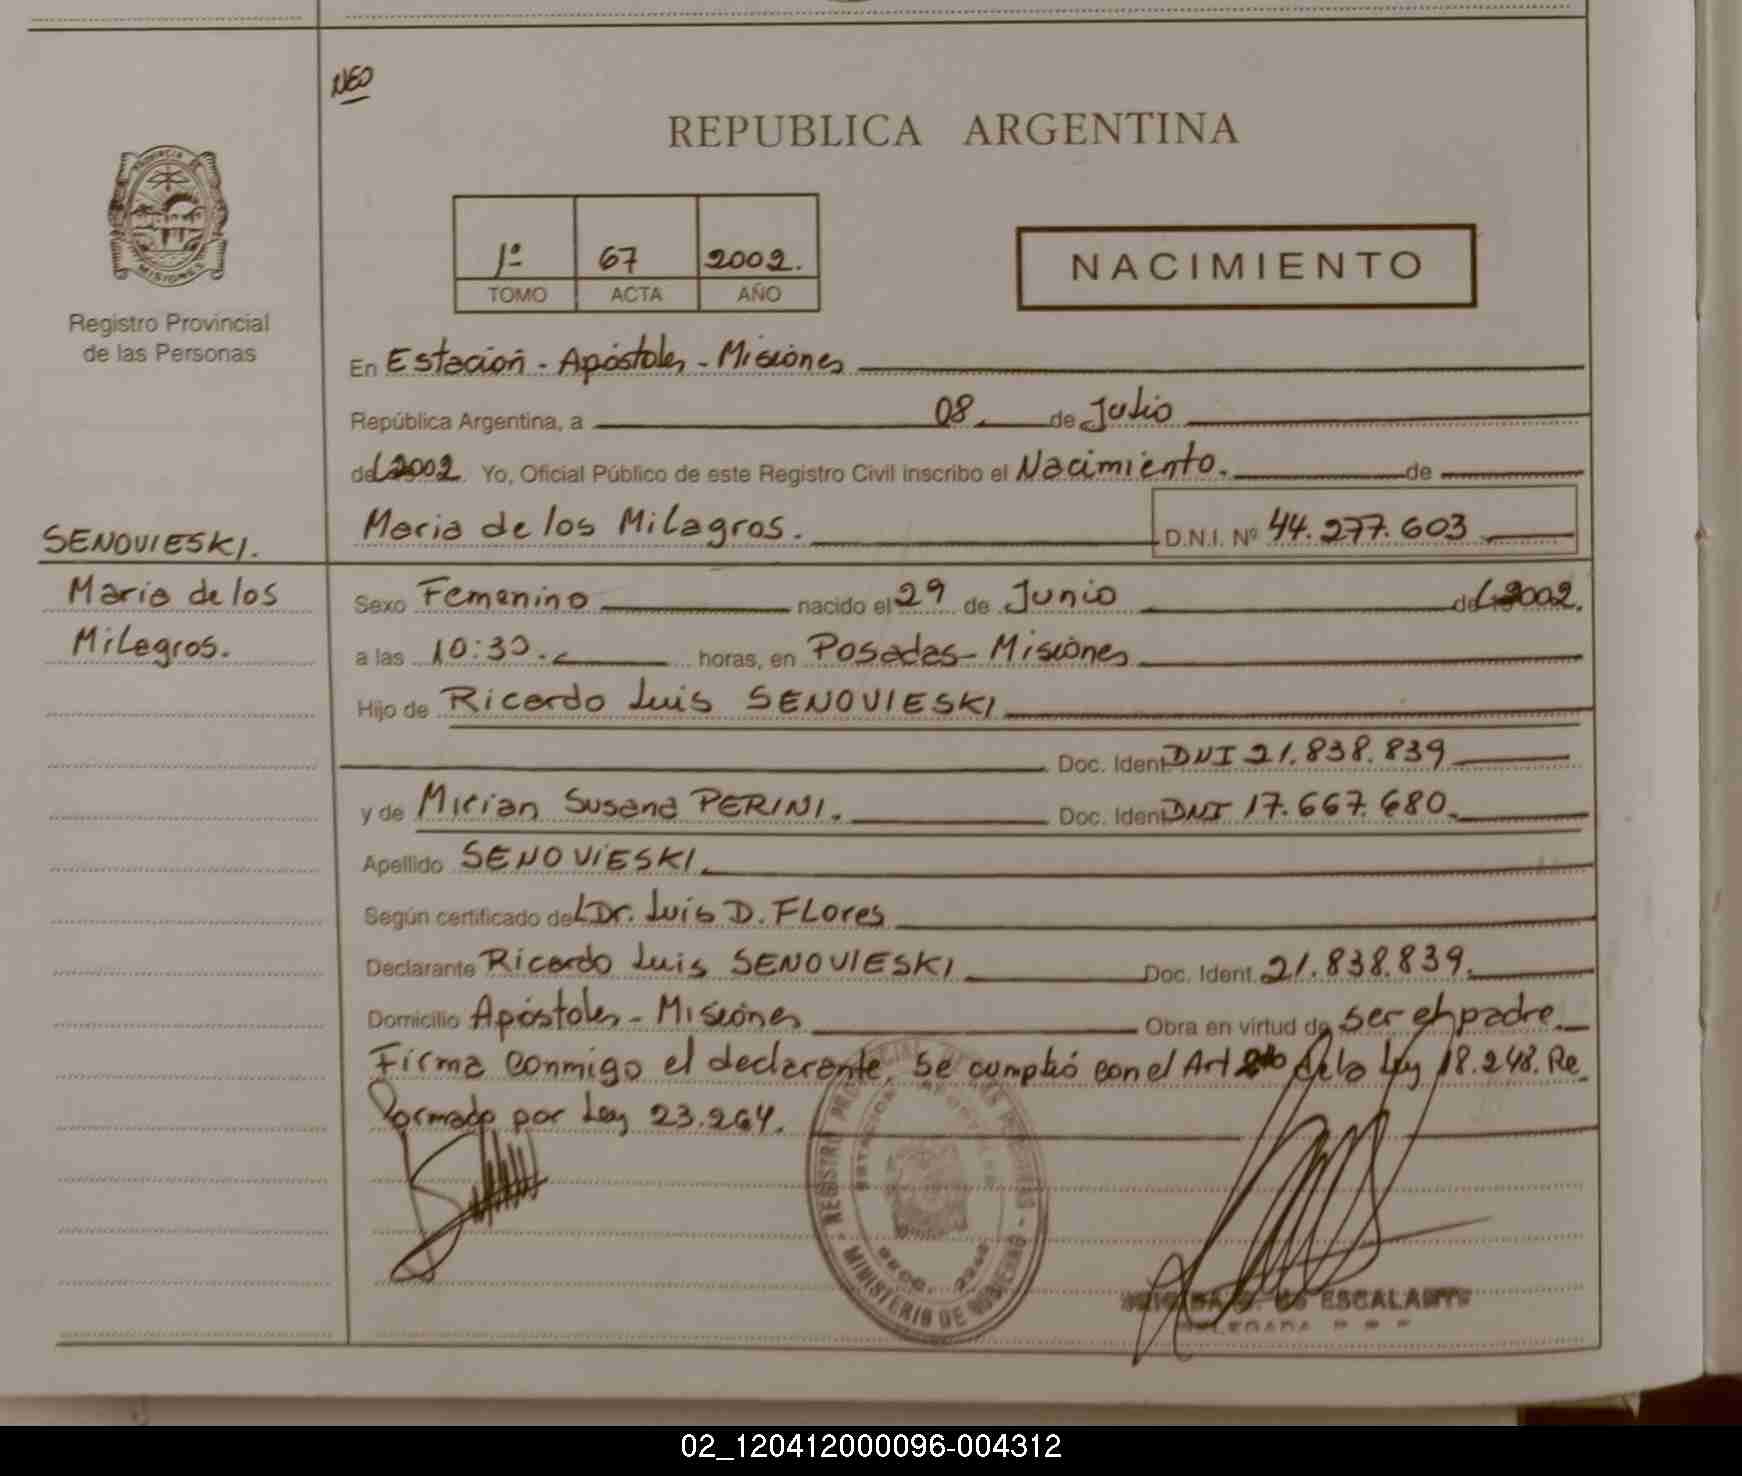 NEO
REPUBLICA ARGENTINA
PROVINCIA DE
MISIONES
Registro Provincial
de las Personas
1º 67 2002.
TOMO ACTA AÑO
NACIMIENTO
En Estación - Apóstoles - Misiones
República Argentina, a 08 de Julio
del 2002. Yo, Oficial Público de este Registro Civil inscribo el Nacimiento. de
SENOVIESKI.
Maria de los Milagros. D.N.I. Nº 44.277.603
Maria de los
Milagros.
Sexo Femenino nacido el 29 de Junio del 2002.
a las 10:30. horas, en Posadas - Misiones
Hijo de Ricardo Luis SENOVIESKI
Doc. Ident DNI 21.838.839
y de Mirian Susana PERINI. Doc. Ident DNI 17.667.680.
Apellido SENOVIESKI.
Según certificado del Dr. Luis D. FLores
Declarante Ricardo Luis SENOVIESKI Doc. Ident. 21.838.839.
Domicilio Apóstoles - Misiones Obra en virtud de ser el padre.
Firma conmigo el declarante. Se cumplió con el Art de la Ley 18.248. Re
formado por Ley 23.264.
REGISTRO PROVINCIAL DE LAS PERSONAS
MINISTERIO DE GOBIERNO
ESCALANTE
DELEGADA
02_120412000096-004312